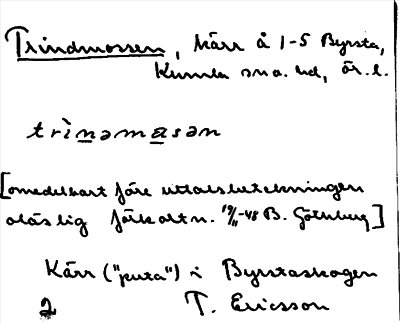 Trindmossen, kärr å 1-5 Byrsta,
Kumla sn o. hd, ör. l.
trìnəmasən
[omedelbart före uttalsbeteckningen
oläslig förkortn. 19/11-48 B. Göteborg]
Kärr ("puta") i Byrstaskogen
2 T. Ericsson